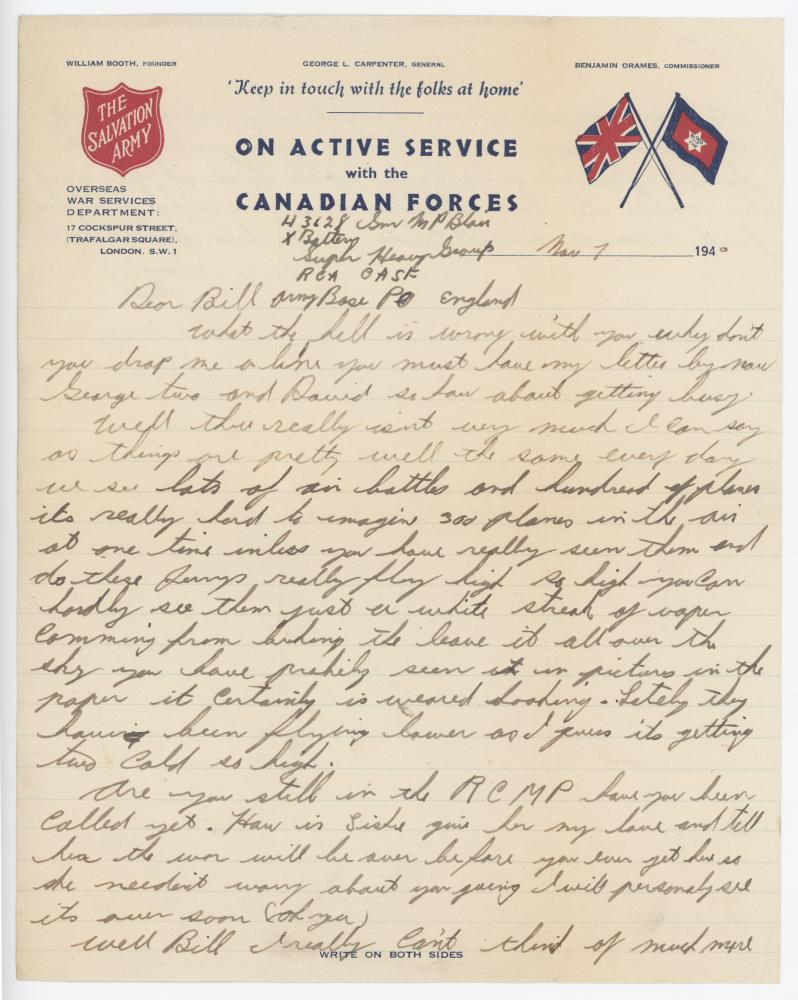 WILLIAM BOOTH, FOUNDER
GEORGE L. CARPENTER, GENERAL
BENJAMIN ORAMES, COMMISSIONER
'Keep in touch with the folks at home'
THE
SALVATION
ARMY
ON ACTIVE SERVICE
with the
CANADIAN FORCES
OVERSEAS
WAR SERVICES
DEPARTMENT:
17 COCKSPUR STREET,
(TRAFALGAR SQUARE),
LONDON, S.W.1
H 3628 Gnr M P Blair
X Battery
Super Heavy Group
Nov 7 1940
RCA CASF
Dear Bill Army Base PO England
What the hell is wrong with you why don't
you drop me a line you must have my letter by now
George two and David so how about getting busy.
Well there really isnt very much I can say
as things are pretty well the same every day
we see lots of air battles and hundred of planes
its really hard to imagin 300 planes in the air
at one time unless you have really seen them and
do these Jerrys really fly high so high you can
hardly see them just a white streak of vaper
comming from behing the leave it all over the
sky you have probily seen it in pictures in the
paper it certainly is weared looking. Lately they
having been flying lower as I guess its getting
two cold so high.
Are you still in the RCMP have you been
called yet. How is Sishe give her my love and tell
her the war will be over before you ever get here so
she needent worry about you going I will personaly see
its over soon (oh yea)
Well Bill I really can't think of much more
WRITE ON BOTH SIDES